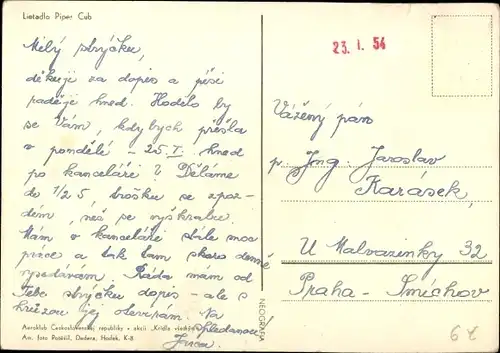 Lietadlo Piper Cub
Milý strýčku,
děkuji za dopis a píši
raději hned. Hodilo by
se Vám, kdybych přišla
v pondělí - 25.I. hned
po kanceláři? Děláme
do 1/2 5, trošku se zpoz-
dím, než se vyškrabu.
Mám v kanceláři stále moc
práce a tak tam skoro denně
vysedávám. Ráda mám od
Tebe strýčku dopis - ale s
hrůzou jej otevírám. Na
shledanou
Aeroklub Československej republiky v akcii „Krídla vlasti"
Am. foto Pospíšil, Dedera, Hodek, K-8
NEOGRAFIA
23. I. 54
Vážený pán
p. Ing. Jaroslav
Karásek,
U Malvazinky 32
Praha - Smíchov